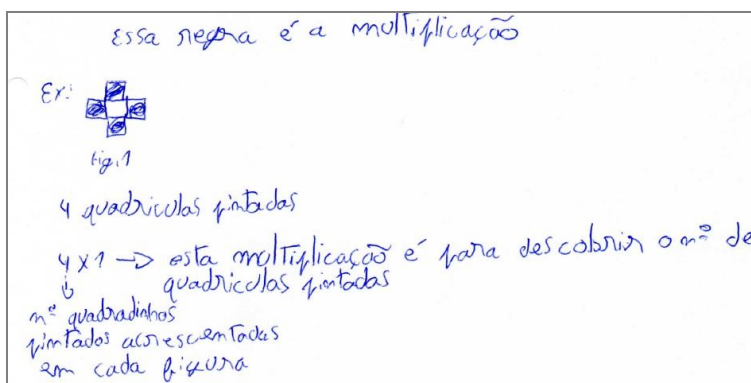 Essa regra é a multiplicação
Ex:
fig.1
4 quadriculas pintadas
4 x 1 -> esta multiplicação é para descobrir o nº de
quadriculas pintadas
nº quadradinhos
pintados acrescentadas
em cada figura